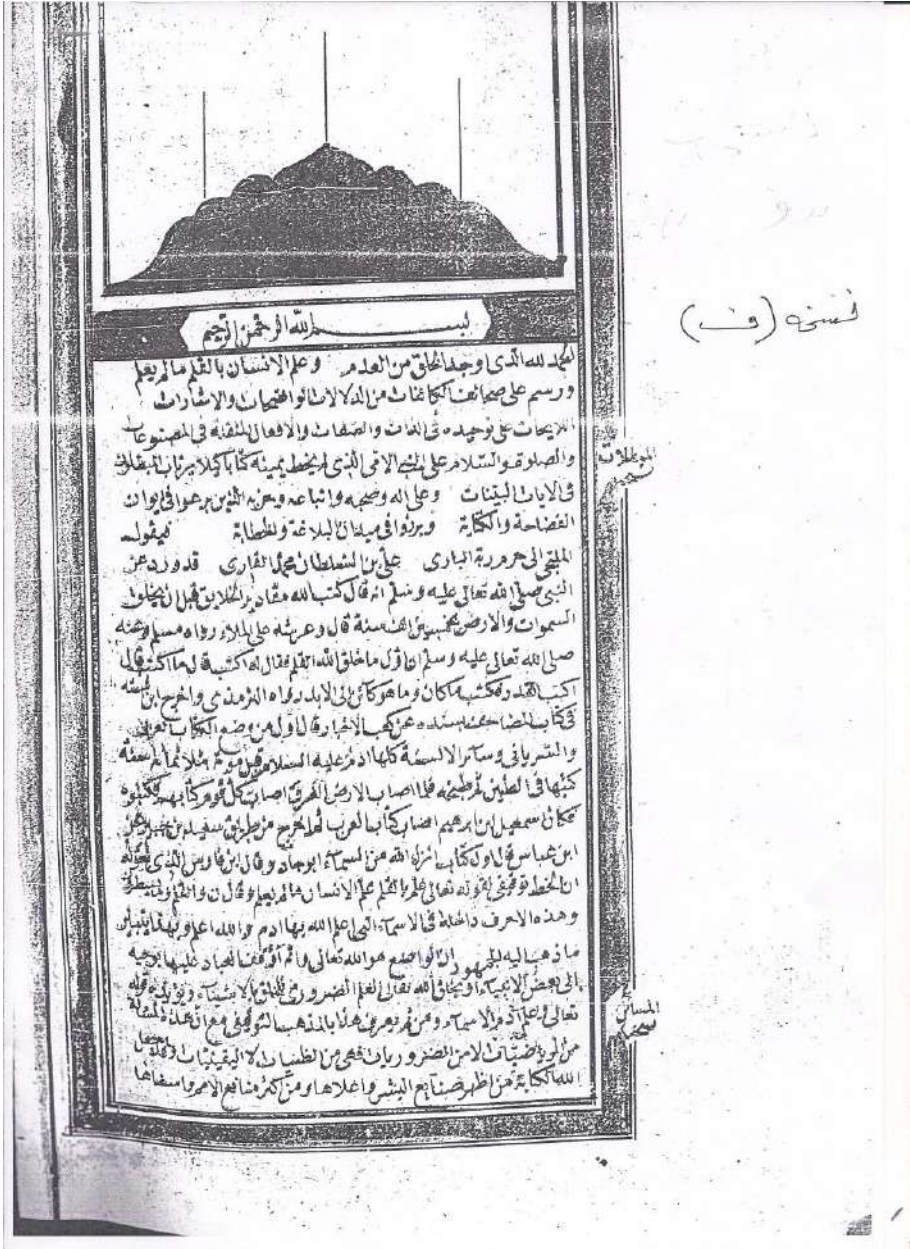 بسم الله الرحمن الرحيم
الحمد لله الذي اوجد الخلق من العدم وعلم الانسان بالقلم مالم يعلم
ورسم على صحائف الكائنات من الدلالات الواضحات والاشارات
اللايحات على توحيده في الذات والصفات والافعال المتقنة في المصنوعات
والصلوة والسلام على النبي الامي الذي لم يخط بيمينه كتابا كيلا يرتاب المبطلون
في الايات البينات وعلى اله وصحبه واتباعه وحزبه الذين برعوا في ايوان
الفصاحة والكتابة وبرزوا في ميدان البلاغة والخطابة فيقول
الملتجي الى حرم ربه الباري علي بن السلطان محمد القاري قد ورد عن
النبي صلى الله تعالى عليه وسلم انه قال كتب الله مقادير الخلايق قبل ان يخلق
السموات والارض بخمسين الف سنة قال وعرشه على الماء رواه مسلم وعنه
صلى الله تعالى عليه وسلم ان اول ما خلق الله القلم فقال له اكتب قال ما اكتب قال
اكتب القدر فكتب ما كان وما هو كائن الى الابد رواه الترمذي واخرج ابن
في كتاب المصاحف بسنده عن كعب الاخبار قال اول من وضع الكتاب العربي
والسرياني وسائر الالسنة كلها ادم عليه السلام قبل موته بثلاثمائة سنة
كتبها في الطين ثم طبخه فلما اصاب الارض الغرق اصاب كل قوم كتابهم فكتبوه
فكان اسمعيل ابن ابرهيم اصاب كتاب العرب ثم اخرج من طريق سعيد بن جبير عن
ابن عباس قال اول كتاب انزل الله من السماء ابو جاد وقال ابن فارس الذي نقوله
ان الخط توقيفي لقوله تعالى علم بالقلم علم الانسان مالم يعلم وقال ن والقلم وما يسطرون
وهذه الاحرف داخلة في الاسماء التي اعلم الله بها ادم والله اعلم وبهذا يتبين
ما ذهب اليه الجمهور ان الواضع هو الله تعالى وانما العباد عليها بوحيه
الى بعض الانبياء او بخلق الله تعالى العلم الضروري للخلق بالاشياء ويؤيده قوله
تعالى وعلم ادم الاسماء ومن ثم يعرف هذا بالمذهب التوقيفي مع ان هذه المسئلة
من الرياضيات لا من الضروريات فهي من الظنيات لا اليقينيات وقد جعل
الله الكتابة من اظهر صنايع البشر واعلاها ومن اكثر منافع الامم واسناها
نسخة (ف)